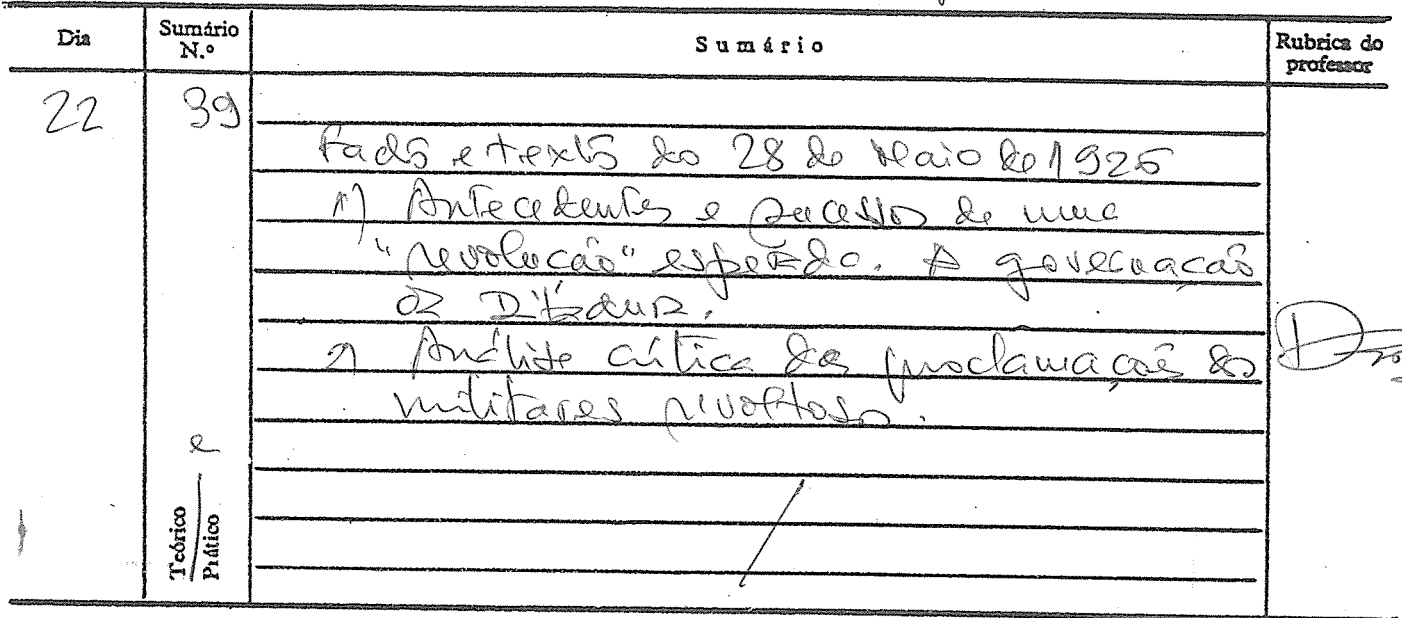 Dia Sumário N.º Sumário Rubrica do professor
22 39
Factos e textos do 28 de Maio de 1926
1) Antecedentes e sucesso de uma
"revolução" esperada. A governação
da Ditadura.
2) Análise crítica das proclamações dos
militares revoltosos.
e
Teórico
Prático